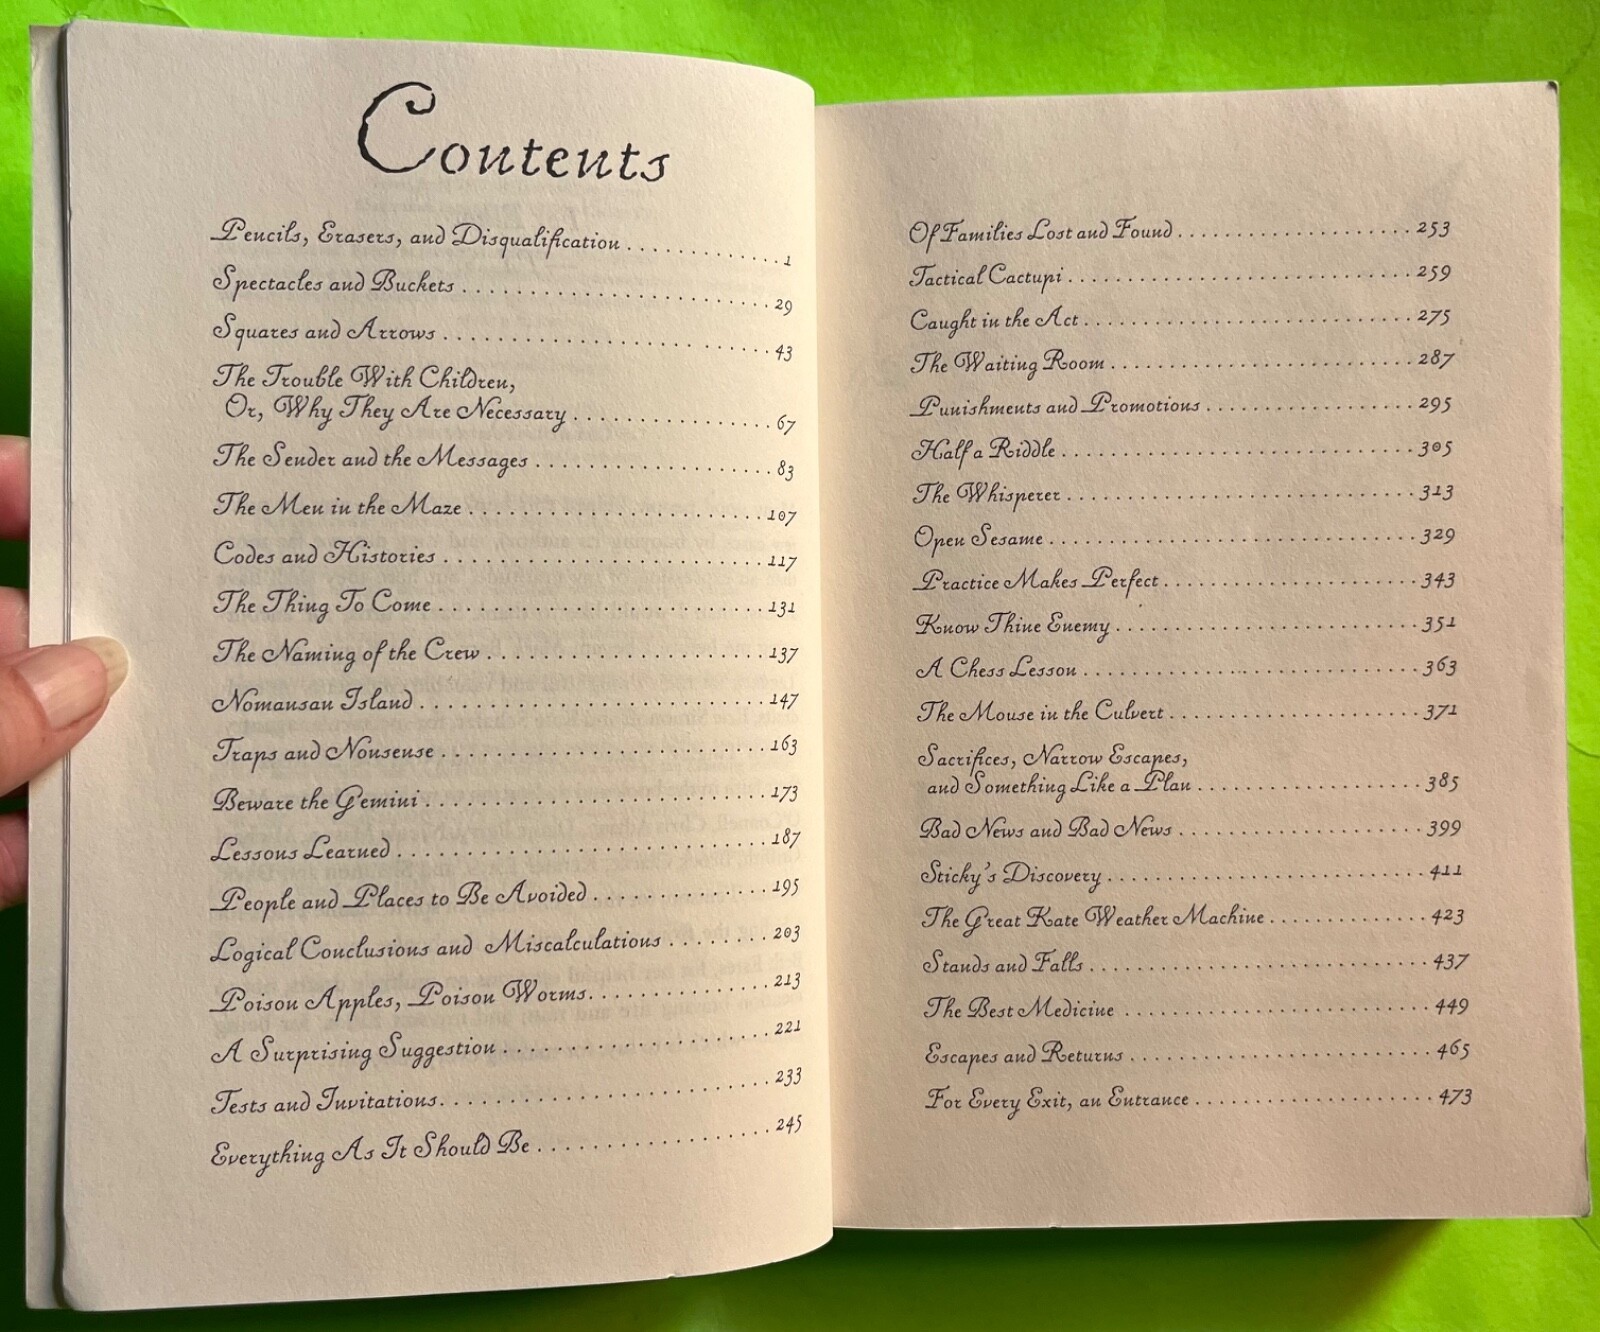 Contents
Pencils, Erasers, and Disqualification . . . . . . . . . . . . 1
Spectacles and Buckets . . . . . . . . . . . . . . . . . . . . . . . . 29
Squares and Arrows . . . . . . . . . . . . . . . . . . . . . . . . . . 43
The Trouble With Children,
Or, Why They Are Necessary . . . . . . . . . . . . . . . . 67
The Sender and the Messages . . . . . . . . . . . . . . . . . . . 83
The Men in the Maze . . . . . . . . . . . . . . . . . . . . . . . . 107
Codes and Histories . . . . . . . . . . . . . . . . . . . . . . . . . . 117
The Thing To Come . . . . . . . . . . . . . . . . . . . . . . . . . . 131
The Naming of the Crew . . . . . . . . . . . . . . . . . . . . . . 137
Nomansan Island . . . . . . . . . . . . . . . . . . . . . . . . . . . . 147
Traps and Nonsense . . . . . . . . . . . . . . . . . . . . . . . . . . 163
Beware the Gemini . . . . . . . . . . . . . . . . . . . . . . . . . . . 173
Lessons Learned . . . . . . . . . . . . . . . . . . . . . . . . . . . . . 187
People and Places to Be Avoided . . . . . . . . . . . . . . 195
Logical Conclusions and Miscalculations . . . . . . . . 203
Poison Apples, Poison Worms. . . . . . . . . . . . . . . 213
A Surprising Suggestion . . . . . . . . . . . . . . . . . . . . . 221
Tests and Invitations. . . . . . . . . . . . . . . . . . . . . . . . . 233
Everything As It Should Be . . . . . . . . . . . . . . . . . . 245
Of Families Lost and Found . . . . . . . . . . . . . . . . . . . . 253
Tactical Cactupi . . . . . . . . . . . . . . . . . . . . . . . . . . . . . 259
Caught in the Act . . . . . . . . . . . . . . . . . . . . . . . . . . . . 275
The Waiting Room . . . . . . . . . . . . . . . . . . . . . . . . . . 287
Punishments and Promotions . . . . . . . . . . . . . . . . . . 295
Half a Riddle . . . . . . . . . . . . . . . . . . . . . . . . . . . . . . 305
The Whisperer . . . . . . . . . . . . . . . . . . . . . . . . . . . . . . 313
Open Sesame . . . . . . . . . . . . . . . . . . . . . . . . . . . . . . . 329
Practice Makes Perfect . . . . . . . . . . . . . . . . . . . . . . . 343
Know Thine Enemy . . . . . . . . . . . . . . . . . . . . . . . . . . 351
A Chess Lesson . . . . . . . . . . . . . . . . . . . . . . . . . . . . . 363
The Mouse in the Culvert . . . . . . . . . . . . . . . . . . . . . 371
Sacrifices, Narrow Escapes,
and Something Like a Plan . . . . . . . . . . . . . . . . . . . 385
Bad News and Bad News . . . . . . . . . . . . . . . . . . . . . 399
Sticky's Discovery . . . . . . . . . . . . . . . . . . . . . . . . . . . 411
The Great Kate Weather Machine . . . . . . . . . . . . . . 423
Stands and Falls . . . . . . . . . . . . . . . . . . . . . . . . . . . . 437
The Best Medicine . . . . . . . . . . . . . . . . . . . . . . . . . . 449
Escapes and Returns . . . . . . . . . . . . . . . . . . . . . . . . . 465
For Every Exit, an Entrance . . . . . . . . . . . . . . . . . . . 473